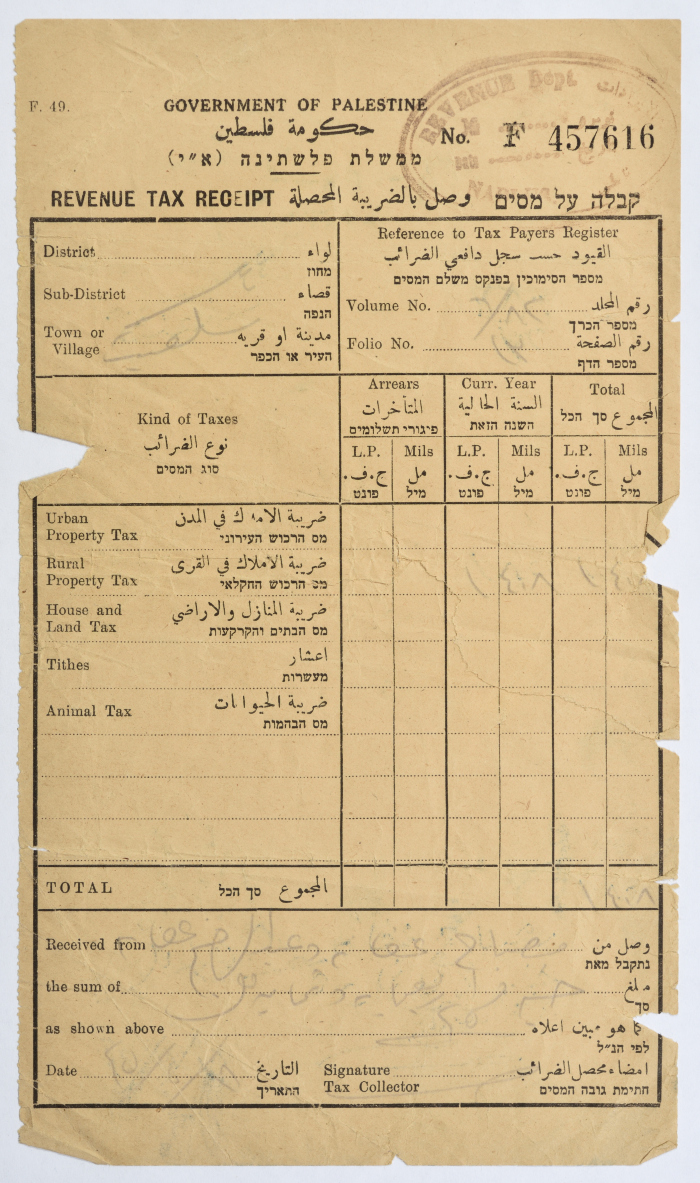 F. 49.
GOVERNMENT OF PALESTINE
حكومة فلسطين
ממשלת פלשתינה (א״י)
No. F 457616
REVENUE Dept.
REVENUE TAX RECEIPT وصل بالضريبة المحصلة קבלה על מסים
District لواء
מחוז
Sub-District قضاء
הנפה
Town or Village مدينة او قريه
העיר או הכפר
Reference to Tax Payers Register
القيود حسب سجل دافعي الضرائب
מספר הסימוכין בפנקס משלם המסים
Volume No. رقم المجلد
מספר הכרך
Folio No. رقم الصفحة
מספר הדף
Kind of Taxes
نوع الضرائب
סוג המסים
Arrears
المتأخرات
פיגורי תשלומים
Curr. Year
السنة الحالية
השנה הזאת
Total
المجموع סך הכל
L.P. Mils L.P. Mils L.P. Mils
ج.ف. مل ج.ف. مل ج.ف. مل
פונט מיל פונט מיל פונט מיל
Urban Property Tax ضريبة الاملاك في المدن
מס הרכוש העירוני
Rural Property Tax ضريبة الاملاك في القرى
מס הרכוש החקלאי
House and Land Tax ضريبة المنازل والاراضي
מס הבתים והקרקעות
Tithes اعشار
מעשרות
Animal Tax ضريبة الحيوانات
מס הבהמות
TOTAL المجموع סך הכל
Received from وصل من
נתקבל מאת
the sum of مبلغ
סך
as shown above كما هو مبين اعلاه
לפי הנ״ל
Date التاريخ
התאריך
Signature Tax Collector امضاء محصل الضرائب
חתימת גובה המסים